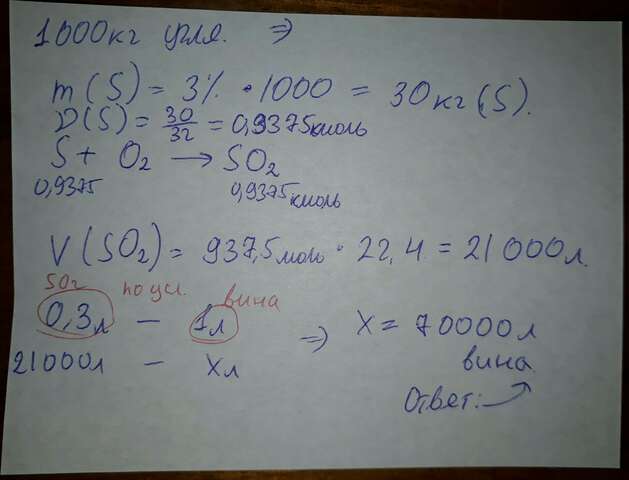 1000кг угля. ⇒
m(S) = 3% · 1000 = 30кг(S).
ν(S) = 30/32 = 0,9375кмоль
S + O₂ → SO₂
0,9375 0,9375кмоль
V(SO₂) = 937,5моль · 22,4 = 21000л.
SO₂ по усл. вина
0,3л — 1л ⇒ X = 70000л
21000л — Xл вина.
Ответ: